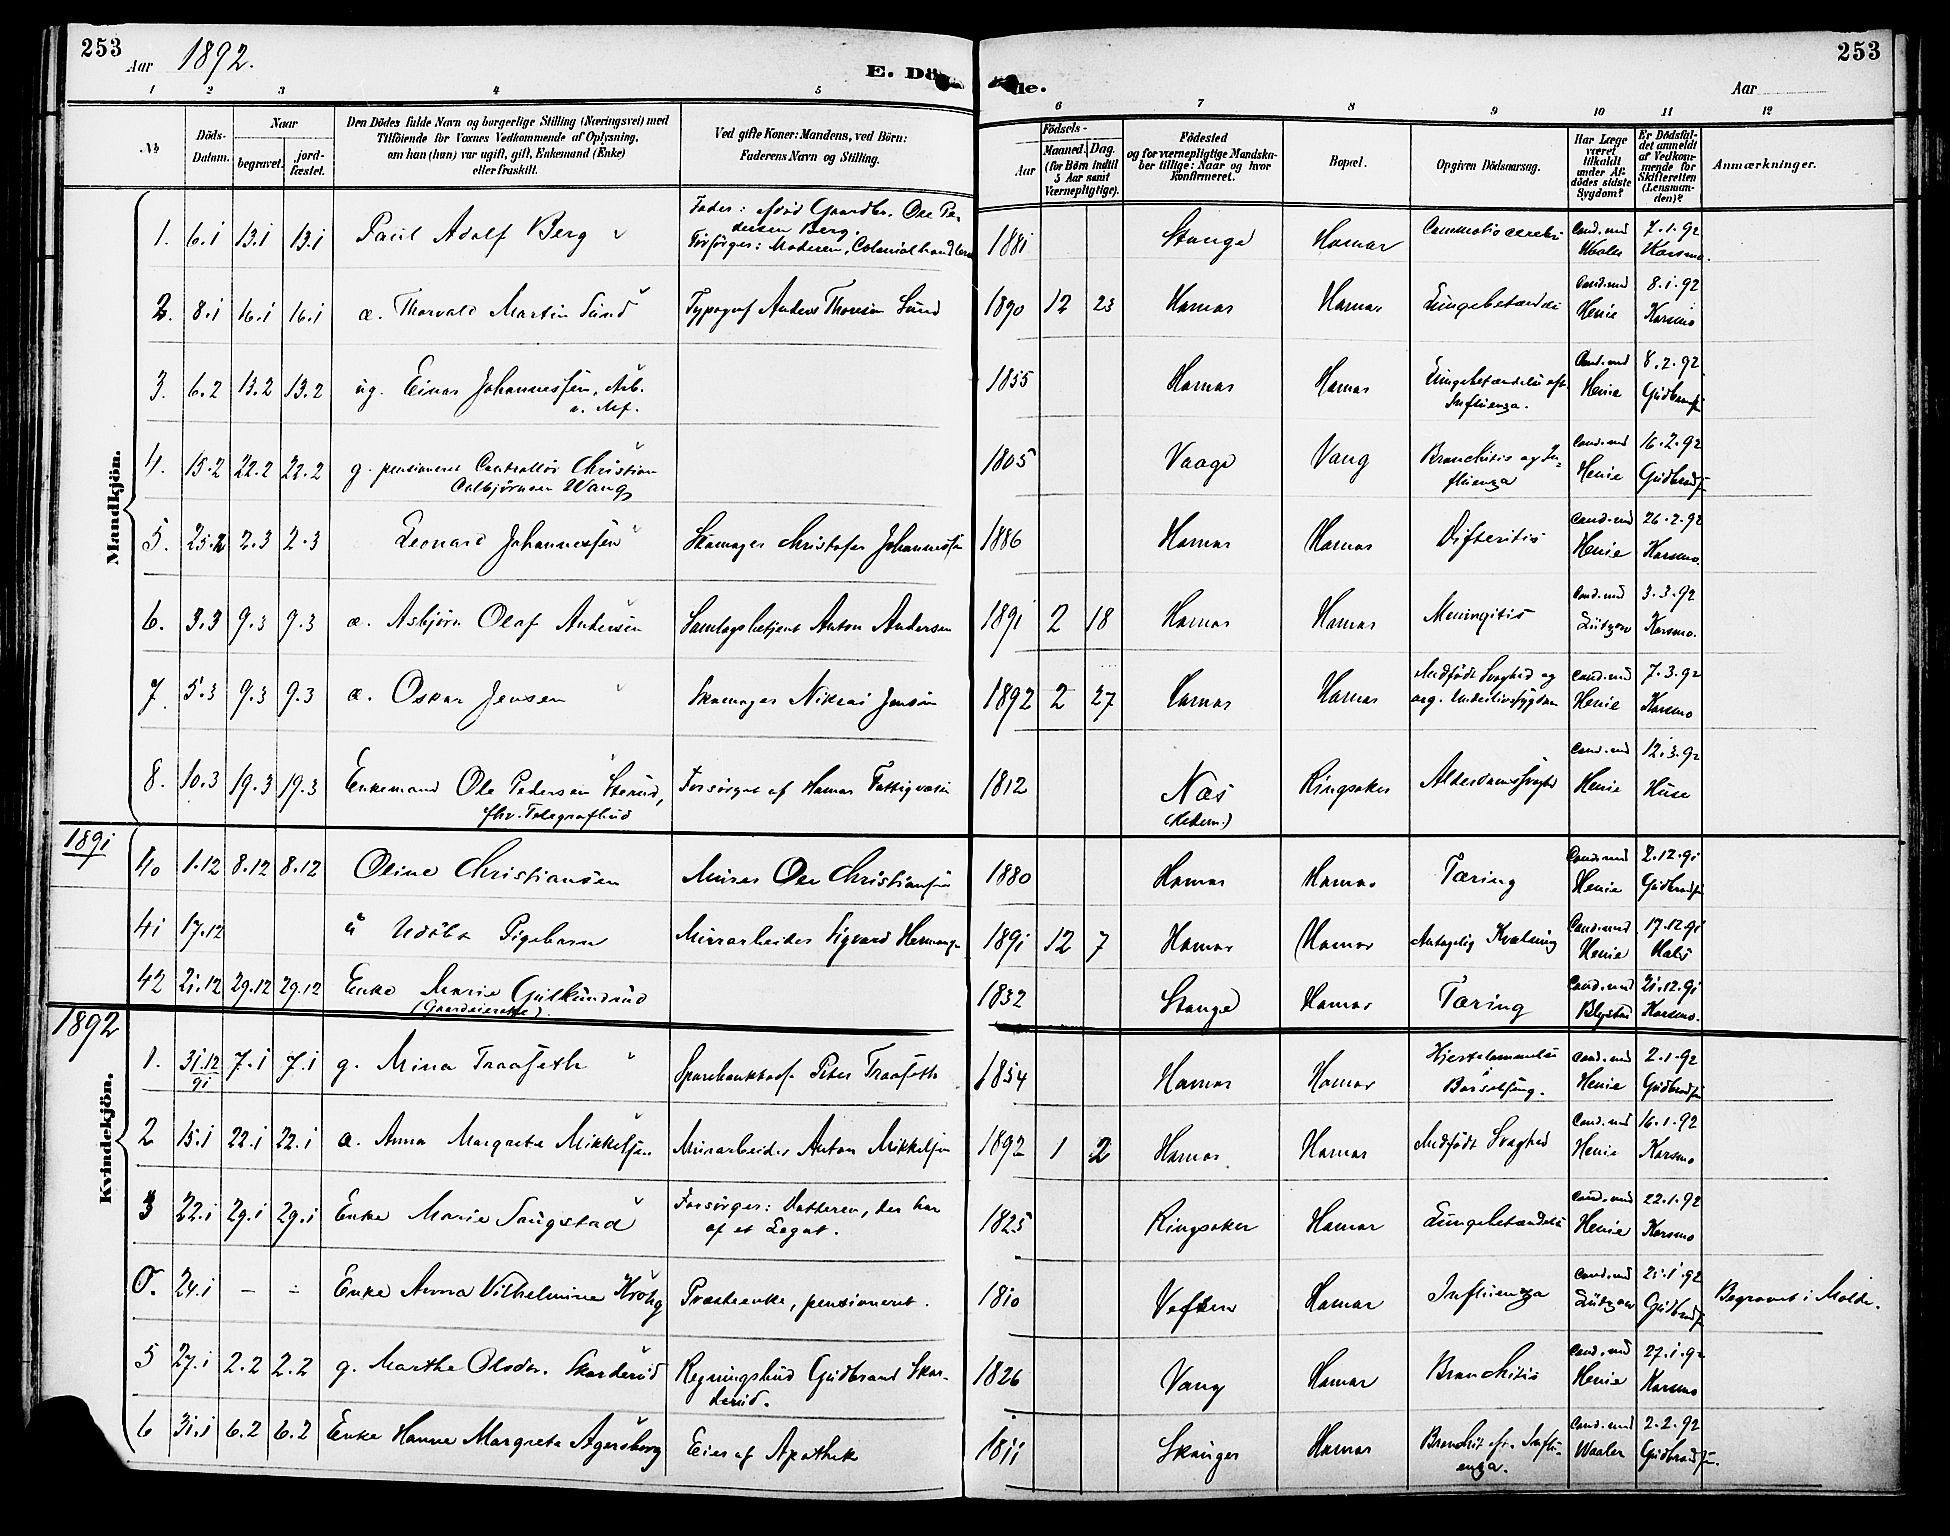 253
Aar 1892.
E. Dö de.
Aar
253
1 2 3 4 5 6 7 8 9 10 11 12
№
Döds-Datum.
Naar
begravet.
jord-fæstet.
Den Dödes fulde Navn og borgerlige Stilling (Næringsvei) med
Tilföiende for Voxnes Vedkommende af Oplysning,
om han (hun) var ugift, gift, Enkemand (Enke)
eller fraskilt.
Ved gifte Koner: Mandens, ved Börn:
Faderens Navn og Stilling.
Födsels-
Aar
Maaned. Dag.
(for Börn indtil
5 Aar samt
Værnepligtige).
Födested
og for værnepligtige Mandska-
ber tillige: Naar og hvor
konfirmeret.
Bopæl.
Opgiven Dödsaarsag.
Har Læge
været
tilkaldt
under Af-
dödes sidste
Sygdom?
Er Dödsfal-
det anmeldt
af Vedkom-
mende for
Skifteretten
(Lensman-
den)?
Anmærkninger.
Mandkjön.
1. 6.1 13.1 13.1 Paul Adolf Berg
Fader: afdöd Gaardbr. Ole Pe-
dersen Berg.
Forsörger: Moderen, Colonialhandlerske
1881 Stange Hamar Commotio cerebri Cand. med Waaler 7.1.92 Karsmo.
2. 8.1 16.1 16.1 æ. Thorvald Martin Sund Typograf Anders Thoresen Sund 1890 12 23 Hamar Hamar Lungebetændelse Cand. med Henie 8.1.92 Karsmo
3. 6.2 13.2 13.2 ug. Einar Johannessen, Arb.
1855 Hamar Hamar Lungebetændelse eft.
Influenza. Cand. med Henie 8.2.92 Gudbrandsen
4. 15.2 22.2 22.2 g. pensioneret Controllör Christian
Colbjörnsen Wang
1805 Vaage Vang Bronchitis og In-
fluenza Cand. med Henie 16.2.92 Gudbrandsen
5. 25.2 2.3 2.3 Leonard Johannessen Skomager Christofer Johannessen 1886 Hamar Hamar Difteritis Cand. med Henie 26.2.92 Karsmo.
6. 3.3 9.3 9.3 æ. Asbjörn Olaf Andersen Samlagsbetjent Anton Andersen 1891 2 18 Hamar Hamar Meningitis Cand. med Lützow 3.3.92 Karsmo.
7. 5.3 9.3 9.3 æ. Oskar Jensen Skomager Nikolai Jensen 1892 2 27 Hamar Hamar Medfödt Svaghed og
org. Underlivssygdom Cand. med Henie 7.3.92 Karsmo
8. 10.3 19.3 19.3 Enkemand Ole Pedersen
fhv. Telegrafbud
Forsörget af Hamar Fattigvæsen 1812 Næs
(Hedem.)
Ringsaker Alderdomssvaghed Cand. med Henie 12.3.92 Huse
1891
40 1.12 8.12 8.12 Oline Christiansen Murer Ole Christiansen 1880 Hamar Hamar Tæring Cand. med Henie 2.12.91 Gudbrandsen
41 17.12 u Udöbt Pigebarn Murarbeider Sigvard Hermansen 1891 12 7 Hamar Hamar Antagelig Kvælning Cand. med Henie 17.12.91
42 21.12 29.12 29.12 Enke Marie Gulkundrud
(Gaardeierske).
1832 Stange Hamar Tæring Cand. med Blystad 21.12.91 Karsmo.
1892
Kvindekjön.
1. 31.12 91 7.1 7.1 g. Mina Traaseth Sparebankbud Peter Traaseth 1854 Hamar Hamar Hjertelammelse
i
Barselseng. Cand. med Henie 2.1.92 Gudbrandsen
2 15.1 22.1 22.1 æ. Anna Margrete Mikkelsen Murarbeider Anton Mikkelsen 1892 1 2 Hamar Hamar Medfödt Svaghed Cand. med Henie 16.1.92 Karsmo
3 22.1 29.1 29.1 Enke Marie Saugstad Forsörger: Datteren, der har
af et Legat.
1825 Ringsaker Hamar Lungebetændelse Cand. med Henie 22.1.92 Karsmo
0. 24.1 – – Enke Anna Vilhelmine Krohg Præsteenke, pensioneret. 1810 Vefsen Hamar Influenza Cand. med Lützow 25.1.92 Gudbrandsen Begravet i Molde.
5 27.1 2.2 2.2 g. Marthe Olsdr. Skarderud Regningsbud Gudbrand Skar-
derud.
1826 Vang Hamar Bronchitis Cand. med Henie 27.1.92 Karsmo
6 31.1 6.2 6.2 Enke Hanne Margrete Agersborg Eier af Apothek 1811 Hamar Bronchit eft. Influ-
enza. Cand. med Waaler 2.2.92 Gudbrandsen.